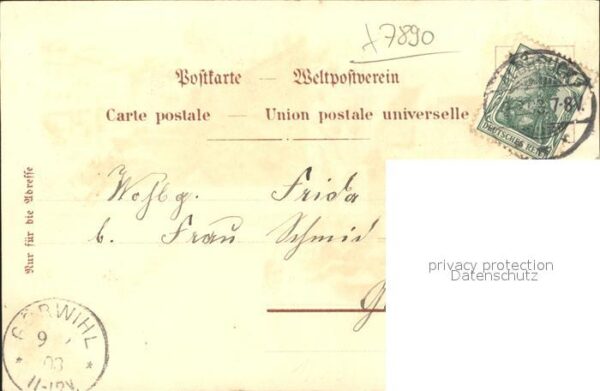 +7890
Postkarte — Weltpostverein
Carte postale — Union postale universelle
DEUTSCHES REICH
7-8V.
Nur für die Adresse
Wohlg. Frida
b. Frau Schmid
privacy protection
Datenschutz
* GÖRWIHL *
9
03
11-12V.